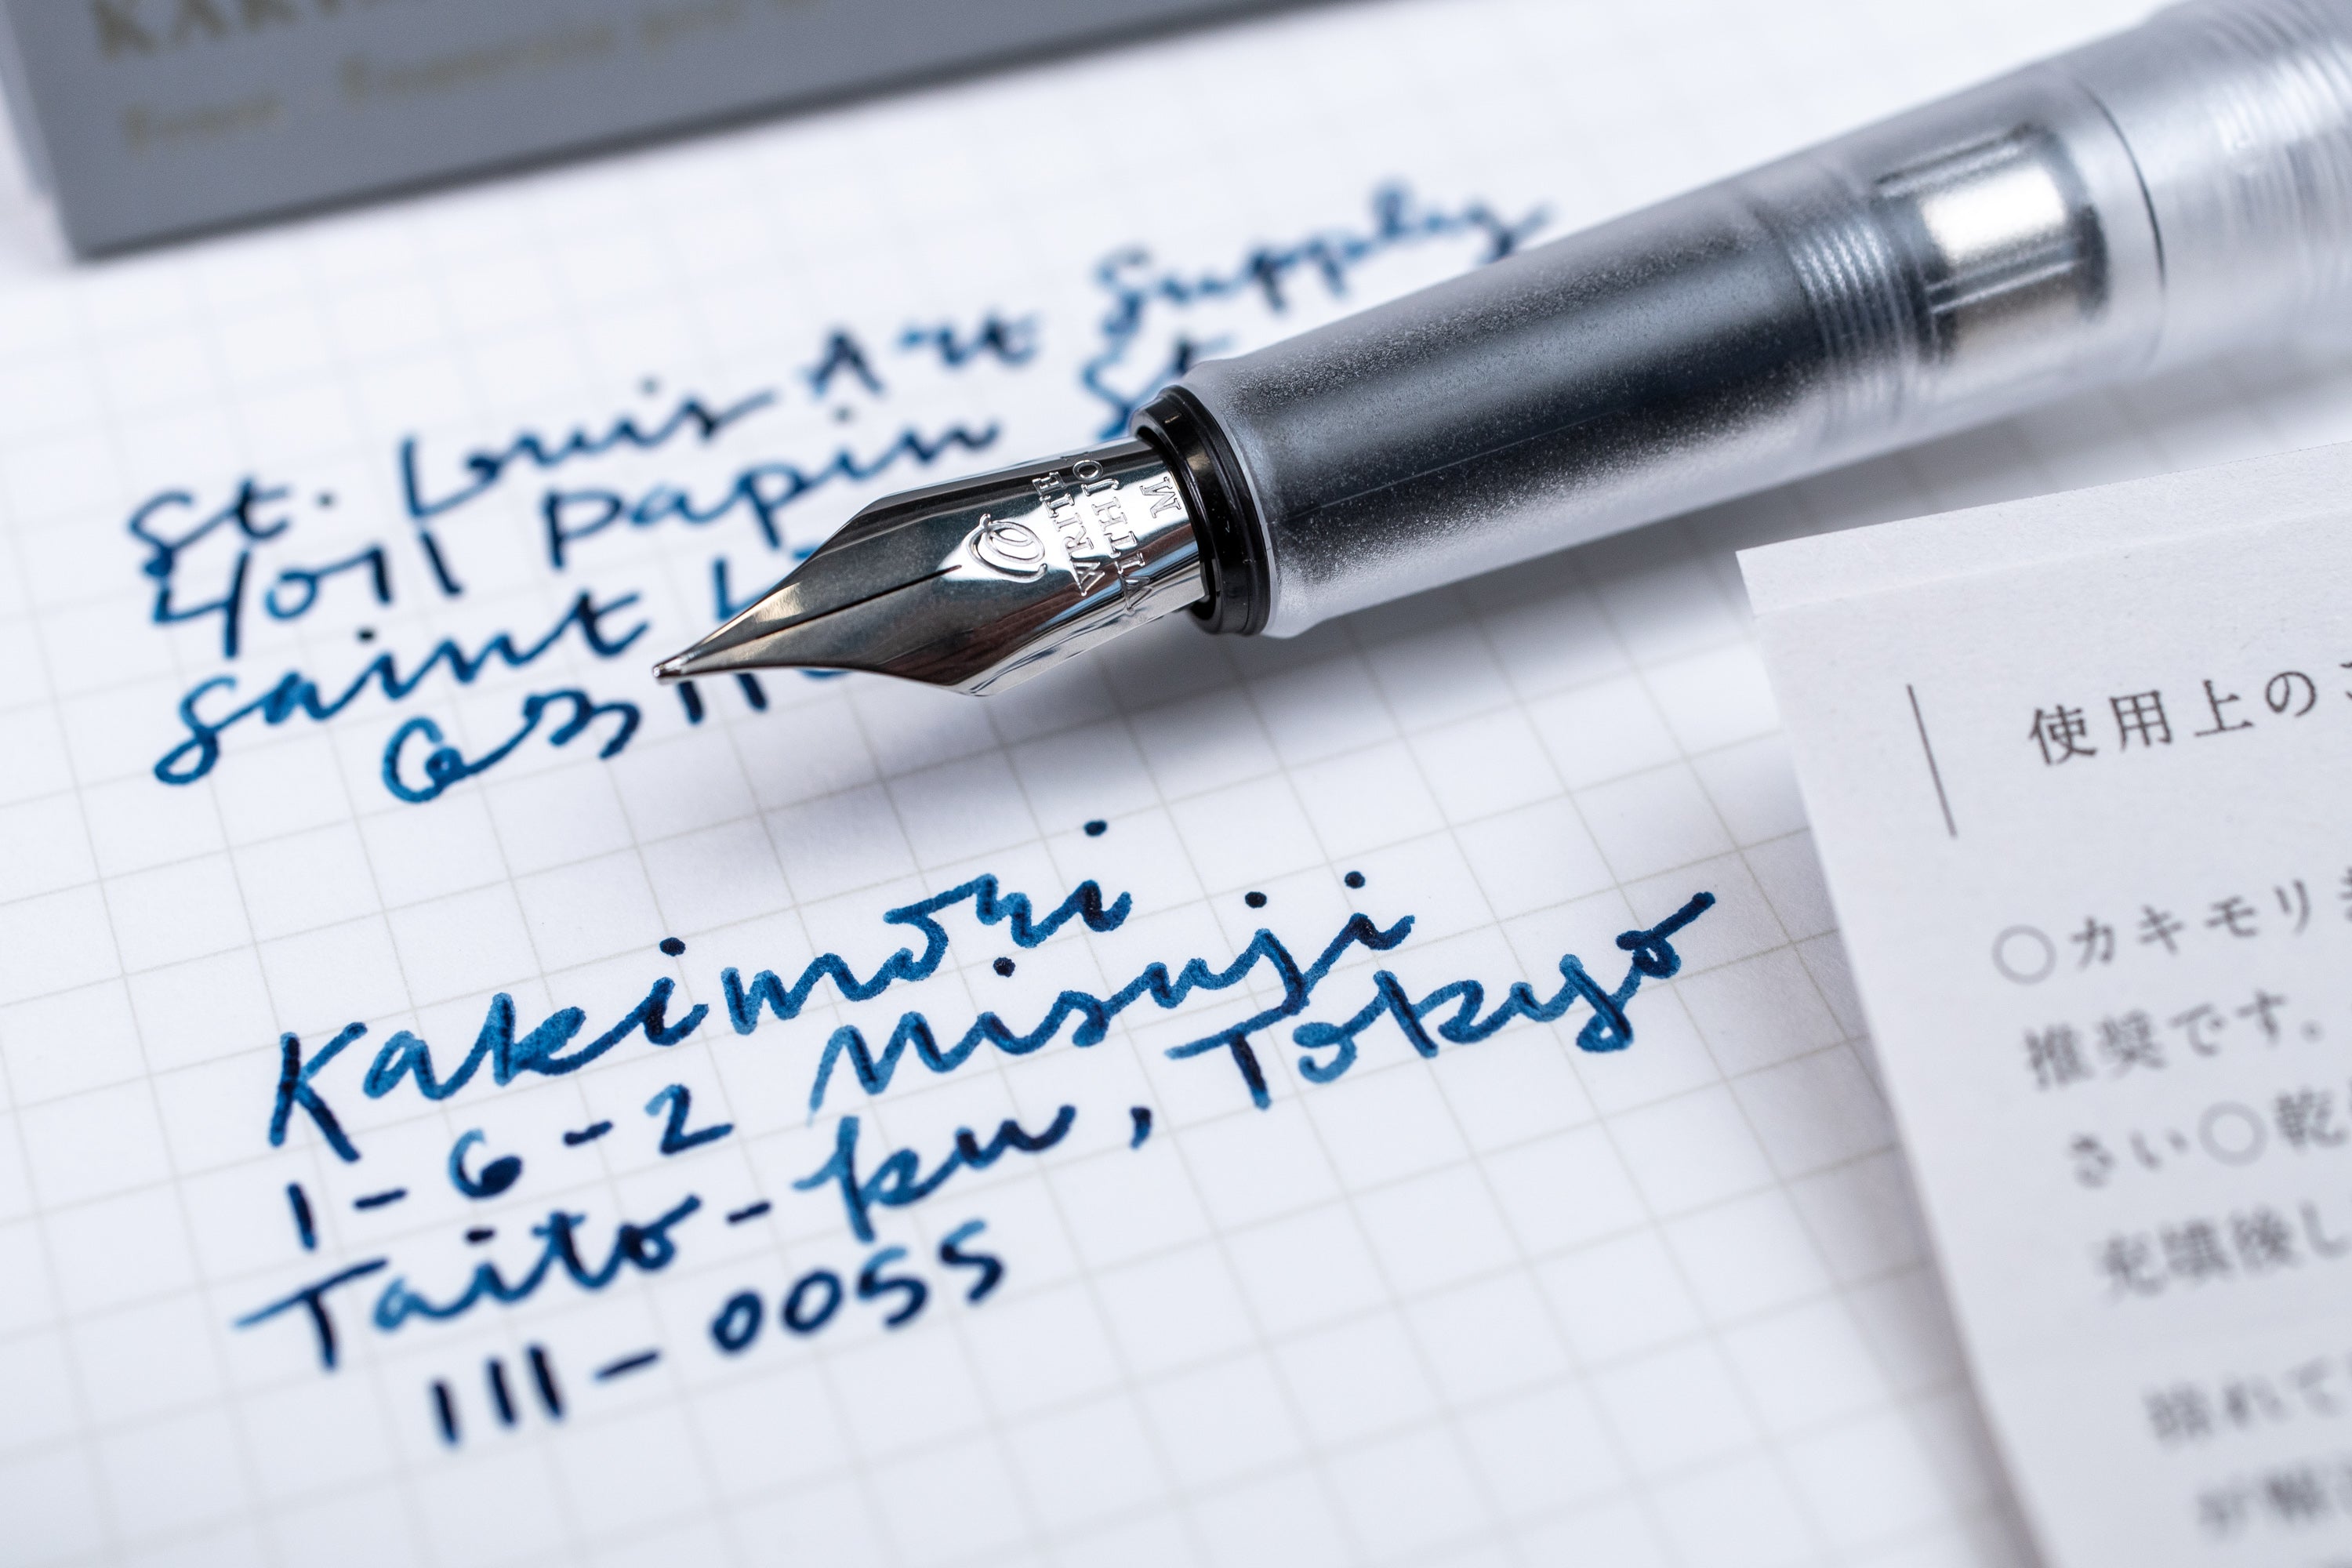 KAKI
St. Louis Art Supply
4011 Papin St
Saint
631
WRITE
WITH JO
M
Kakimori
1-6-2 Misuji
Taito-ku, Tokyo
111-0055
使用上の
○カキモリ
推奨です。
さい○乾
充填後し